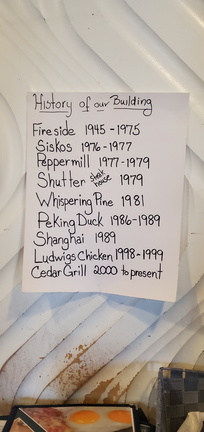 History of our Building
Fireside 1945-1975
Siskos 1976-1977
Peppermill 1977-1979
Shutter steak house 1979
Whispering Pine 1981
Peking Duck 1986-1989
Shanghai 1989
Ludwigs Chicken 1998-1999
Cedar Grill 2000 to present